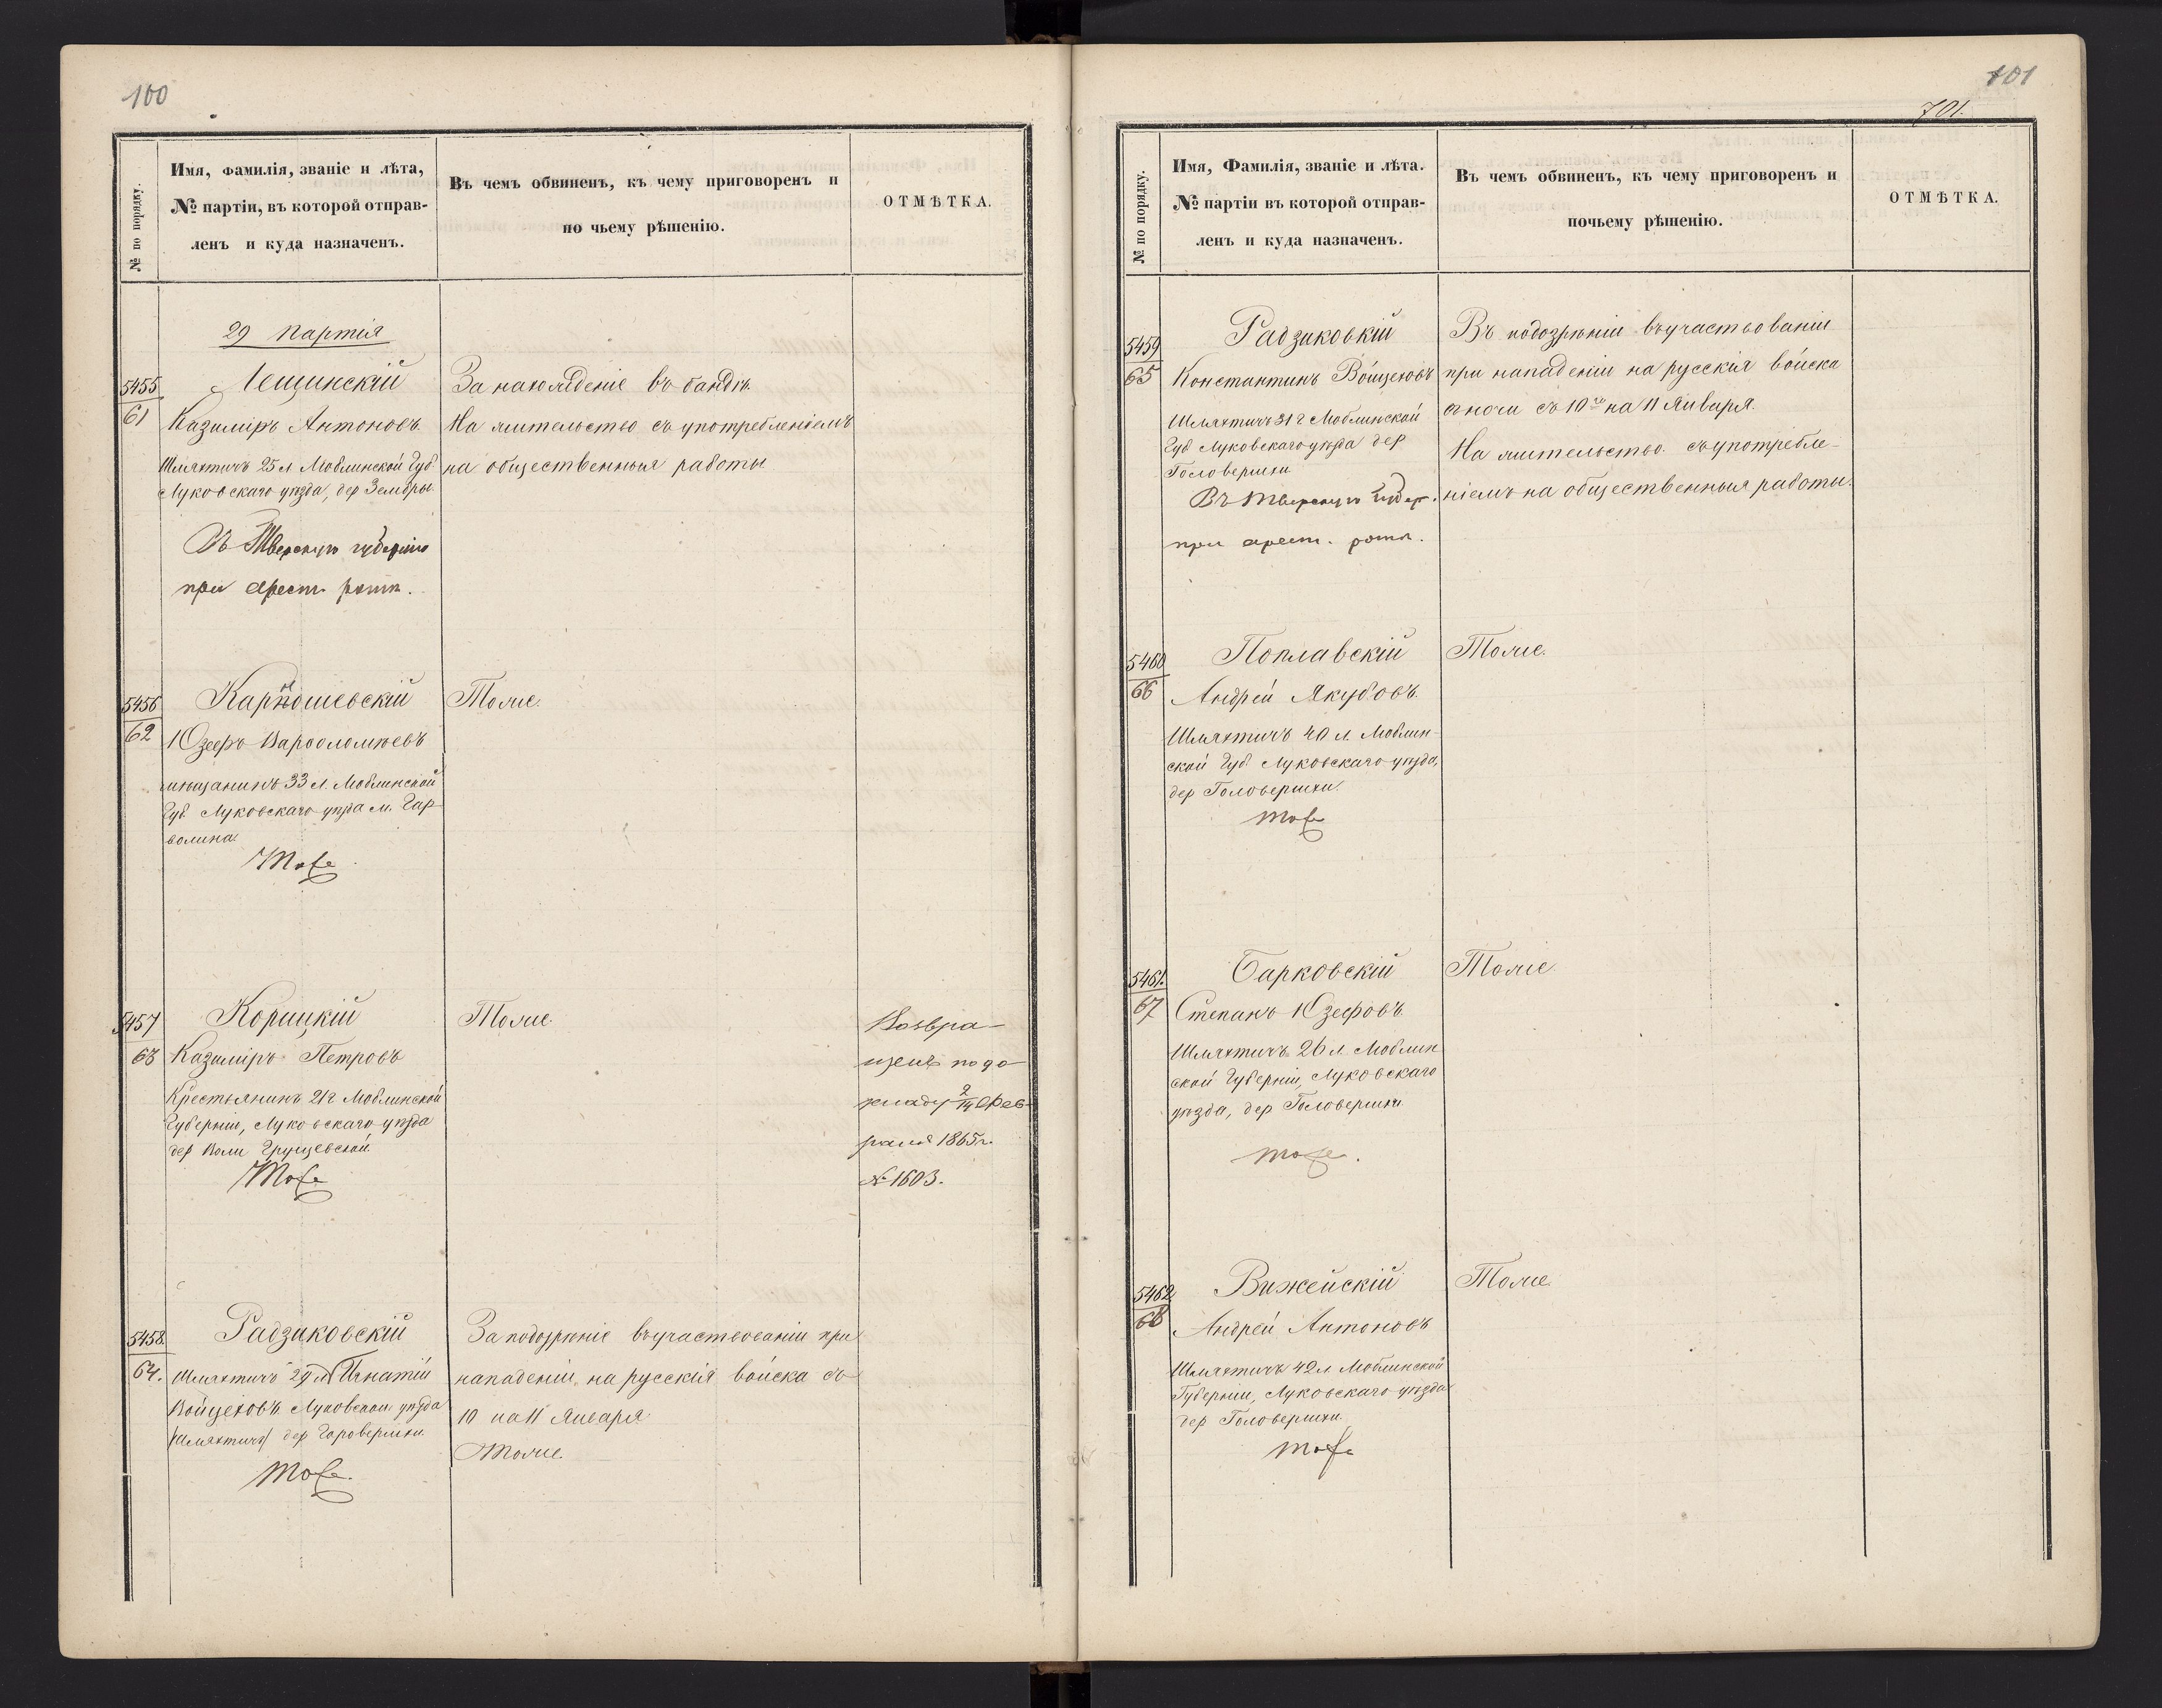 100
№ по порядку.
Имя, фамилія, званіе и лѣта,
№ партіи, въ которой отправ-
ленъ и куда назначенъ.
Въ чемъ обвиненъ, къ чему приговоренъ и
по чьему рѣшенію.
ОТМѢТКА.
29 партія
5455
61
Лещинскій
Казиміръ Антоновъ.
Шляхтичъ 25 л Люблинской Губ
Луковскаго уѣзда, дер Зембры.
Въ Тверскую губернію
при арест. ротѣ.
За нахожденіе въ бандѣ.
На жительство съ употребленіемъ
на общественныя работы
5456
62
Юзефъ Варѳоломѣевъ
мѣщанинъ 33 л. Люблинской
Губ Луковскаго уѣзда м. Гар-
волина.
Тоже
Тоже.
5457
63
Корицкій
Казиміръ Петровъ
Крестьянинъ 21 г Люблинской
Губерніи, Луковскаго уѣзда
дер Воли
Тоже
Тоже.
Возвра-
щенъ по до-
кладу 2/14 Фев-
раля 1865 г.
№ 1603.
5458.
64.
Радзиковскій
Шляхтичъ 29 л Игнатій
Войцеховъ Луковскаго уѣзда
(шляхтичъ) дер Гаровершки
Тоже.
За подозрѣніе въ участвованіи при
нападеніи на русскія войска съ
10 на 11 Января
Тоже.
101
701.
№ по порядку.
Имя, Фамилія, званіе и лѣта.
№ партіи въ которой отправ-
ленъ и куда назначенъ.
Въ чемъ обвиненъ, къ чему приговоренъ и
почьему рѣшенію.
ОТМѢТКА.
5459
65
Радзиковкій
Константинъ Войцеховъ
Шляхтичъ 31 г Люблинской
Губ Луковскаго уѣзда дер
Головершки
Въ Тверскую губер.
при арест. ротѣ.
Въ подозрѣніи въ участвованіи
при нападеніи на русскія войска
въ ночи съ 10го на 11 Января.
На жительство съ употребле-
ніемъ на общественныя работы.
5460
66
Поплавскій
Андрей Якубовъ.
Шляхтичъ 40 л. Люблин-
ской Губ. Луковскаго уѣзда,
дер Головершки.
Тоже
Тоже.
5461.
67
Барковскій
Степанъ Юзефовъ.
Шляхтичъ 26 л. Люблин
ской Губерніи, Луковскаго
уѣзда, дер Головершки
Тоже.
Тоже
5462
68
Вижейскій
Андрей Антоновъ
Шляхтичъ 42 л Люблинской
Губерніи, Луковскаго уѣзда
дер Головершки.
Тоже
Тоже